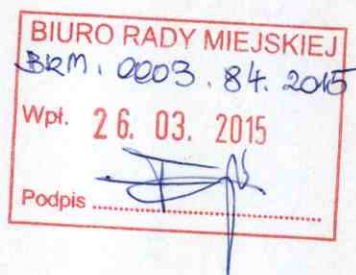 BIURO RADY MIEJSKIEJ
BRM. 0003. 84. 2015
Wpł. 26. 03. 2015
Podpis ..........................................